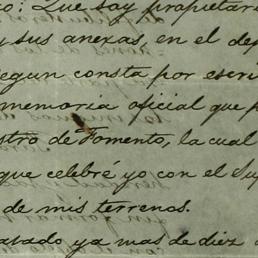 o: Que soy propietari
y sus anexas, en el dep
segun consta por escri
memoria oficial que p
stro de Fomento, la cual
que celebré yo con el Sup
de mis terrenos.
atado ya mas de diez a